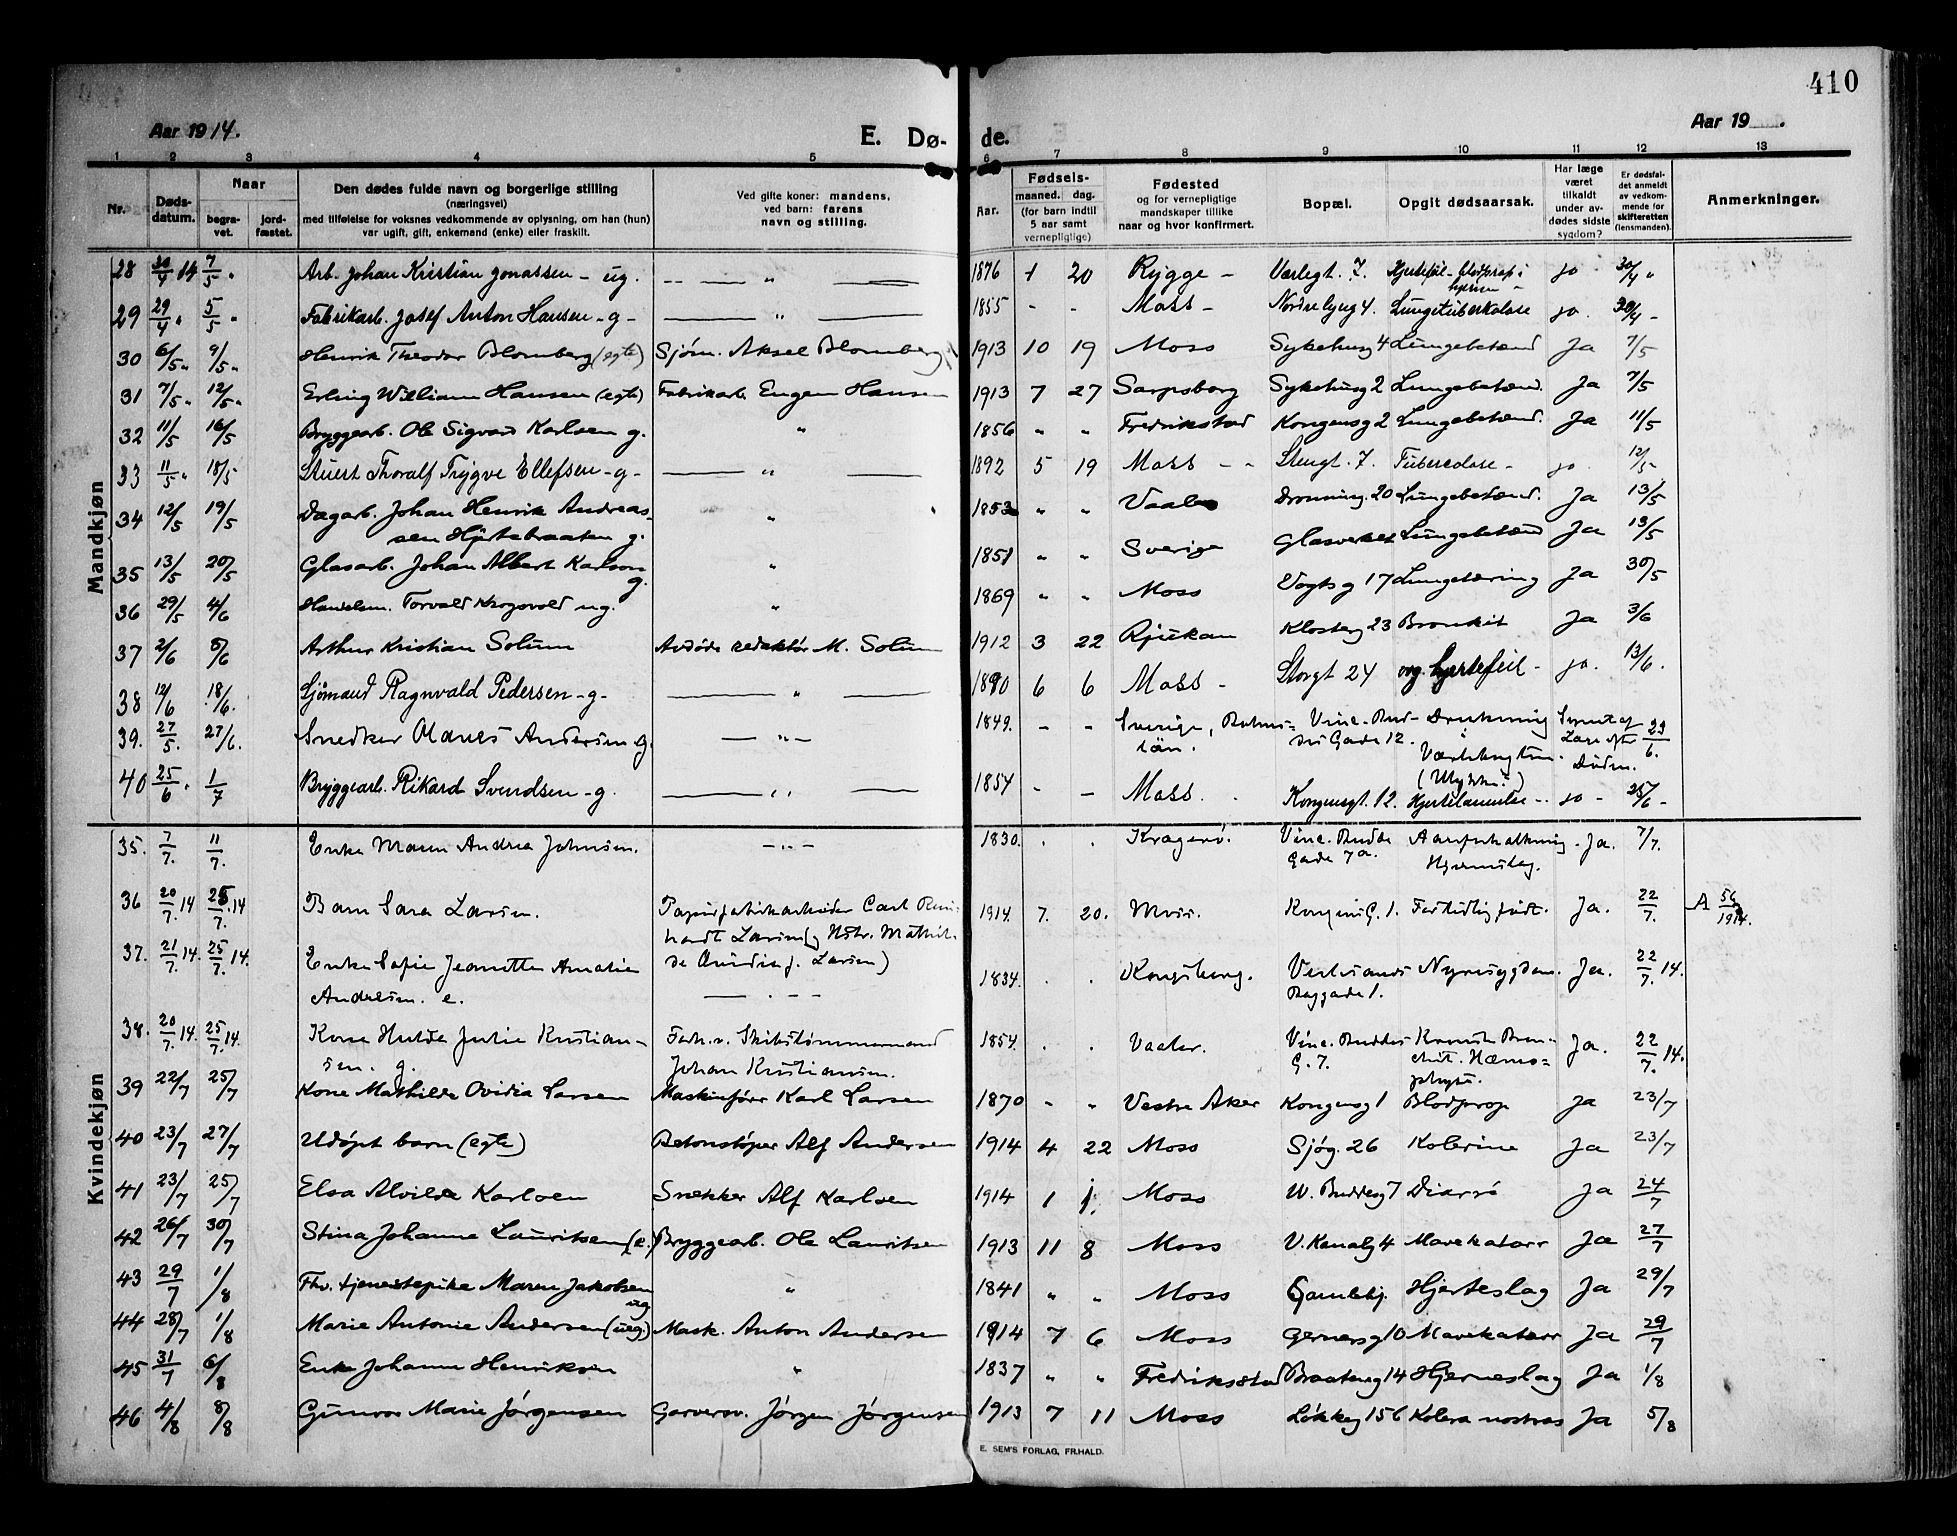 410
Aar 1914.
E. Dø-
de.
Aar 19 .
1 2 3 4 5 6 7 8 9 10 11 12 13
Nr.
Døds-
datum.
Naar
begra-
vet.
jord-
fæstet.
Den dødes fulde navn og borgerlige stilling
(næringsvei)
med tilføielse for voksnes vedkommende av oplysning, om han (hun)
var ugift, gift, enkemand (enke) eller fraskilt.
Ved gifte koner: mandens,
ved barn: farens
navn og stilling.
Aar.
Fødsels-
maaned. dag.
(for barn indtil
5 aar samt
vernepligtige)
Fødested
og for vernepligtige
mandskaper tillike
naar og hvor konfirmert.
Bopæl.
Opgit dødsaarsak.
Har læge
været
tilkaldt
under av-
dødes sidste
sygdom?
Er dødsfal-
det anmeldt
av vedkom-
mende for
skifteretten
(lensmanden).
Anmerkninger.
Mandkjøn
28 30/4 14 7/5 " Arb. Johan Kristian Jonassen - ug. " 1876 1 20 Rygge - Værlegt. 7. Hjertefeil - blodprop i
hjernen - jo 30/4 "
29 29/4 " 5/5 " Fabrikarb. Josef Anton Hansen - g - " 1855 - - Moss - Nordre byug 4. Lungetuberkulose jo. 30/4 -
30 6/5 " 9/5 " Henrik Theodor Blomberg (egte) Sjøm. Aksel Blomberg 1913 10 19 Moss Sykehusg 4 Lungebetænd Ja 7/5
31 7/5 " 12/5 " Erling William Hansen (egte) Fabrikarb. Eugen Hansen 1913 7 27 Sarpsborg Sykehusg 2 Lungebetænd. Ja 7/5
32 11/5 16/5 Bryggearb. Ole Sigvard Karlsen g. " 1856 " " Fredrikstad Kongensg 2 Lungebetænd. Ja 11/5
33 11/5 " 18/5 Stuert Thoralf Trygve Ellefsen - g - " 1892 5 19 Moss - - Stengt. 7. Tuberculose - jo. 12/5
34 12/5 19/5 Dagarb. Johan Henrik Andreas-
sen Hjortebraaten g. " 1853 " " Vaaler Dronning. 20 Lungebetænd. Ja 13/5
35 13/5 20/5 Glasarb. Johan Albert Karlson
g. " 1851 " " Sverige Glasverket Lungebetænd Ja 13/5
36 29/5 4/6 Handelsm. Torvald Krogsvold ug. " 1869 " " Moss Vogtsg 17 Lungetæring Ja 30/5
37 2/6 6/6 Arthur Kristian Solum Avdøde redaktør M. Solum 1912 3 22 Rjukan Klosterg 23 Bronkit Ja 3/6
38 12/6 18/6. Sjømand Ragnvald Pedersen - g - " 1890 6 6 Moss - Storgt 24 org. hjertefeil - jo. 13/6.
39. 27/5. 27/6. Snedker Andersen g. - " - 1849. - - Sverige,
län. Vinc. Bud-
des Gade 12. Drukning
i
Læge efter
Døden. 23/6.
40 25/6 1/7 Bryggearb. Rikard Svendsen - g. " 1854 - - Moss. Kongensgt. 12. Hjertelammelse - jo - 25/6 -
Kvindekjøn
35. 7/7. 11/7. Enke Maren Andrea Johnsen. - " - 1830. . . Kragerø. Vinc. Budde
Gade 7a. Aareforkalkning
Hjerneslag. Ja. 7/7.
36 20/7. 14 25/7. 14 Barn Sara Larsen. Papirfabrikarbeider Carl Rein-
hardt Larsen (g Hstr. Mathil-
de Ovidia f. Larsen) 1914. 7. 20. Moss. Kongens G. 1. Fortidlig født. Ja. 22/7. A 56/1914.
37. 21/7. 14. 25/7. 14. Enke Sofie Jeanette Amalie
Andersen. e. 1834. . . Kongsberg.
Baggade 1. Nyresygdom. Ja. 22/7. 14.
38. 20/7. 14. 25/7. 14. Kone Hulda Julie Kristian-
sen. g. Forh.v. Skibstømmermand
Johan Kristiansen. 1854. . . Vaaler. Vinc. Buddes
G. 7. Kronisk Bron-
chit. Hæmo-
ptyse. Ja. 22/7. 14.
39 22/7 25/7 Kone Mathilde Ovidia Larsen Maskinfører Karl Larsen 1870 - " Vestre Aker Kongensg 1 Blodprop Ja 23/7
40 23/7 27/7 Udøpt barn (egte) Betonstøper Alf Andersen 1914 4 22 Moss Sjøg. 26 Kolerine Ja 23/7
41 23/7 25/7 Elsa Alvilde Karlsen Snekker Alf Karlsen 1914 1 1. Moss W. Buddesg 7 Diarré Ja 24/7
42 26/7 30/7 Stina Johanne Lauritsen (e.) Bryggearb. Ole Lauritsen 1913 11 8 Moss V. Kanalg 4 Mavekatarr Ja 27/7
43 29/7 1/8 Fhv. tjenestepike Maren Jakobsen
ug " 1841 " " Moss Gamlehj. Hjerteslag Ja 29/7
44 28/7 1/8 Marie Antonie Andersen (ueg.) Mask. Anton Andersen 1914 7 6 Moss Gernersg 10 Mavekatarr Ja 29/7
45 31/7 6/8 Enke Johanne Henriksen " 1837 " " Fredriksstad Braateng 14 Hjerneslag Ja 1/8
46 4/8 8/8 Gunvor Marie Jørgensen Garversv. Jørgen Jørgensen 1913 7 11 Moss Løkkeg 156 Kolera nostras Ja 5/8
E. SEM'S FORLAG, FR.HALD.